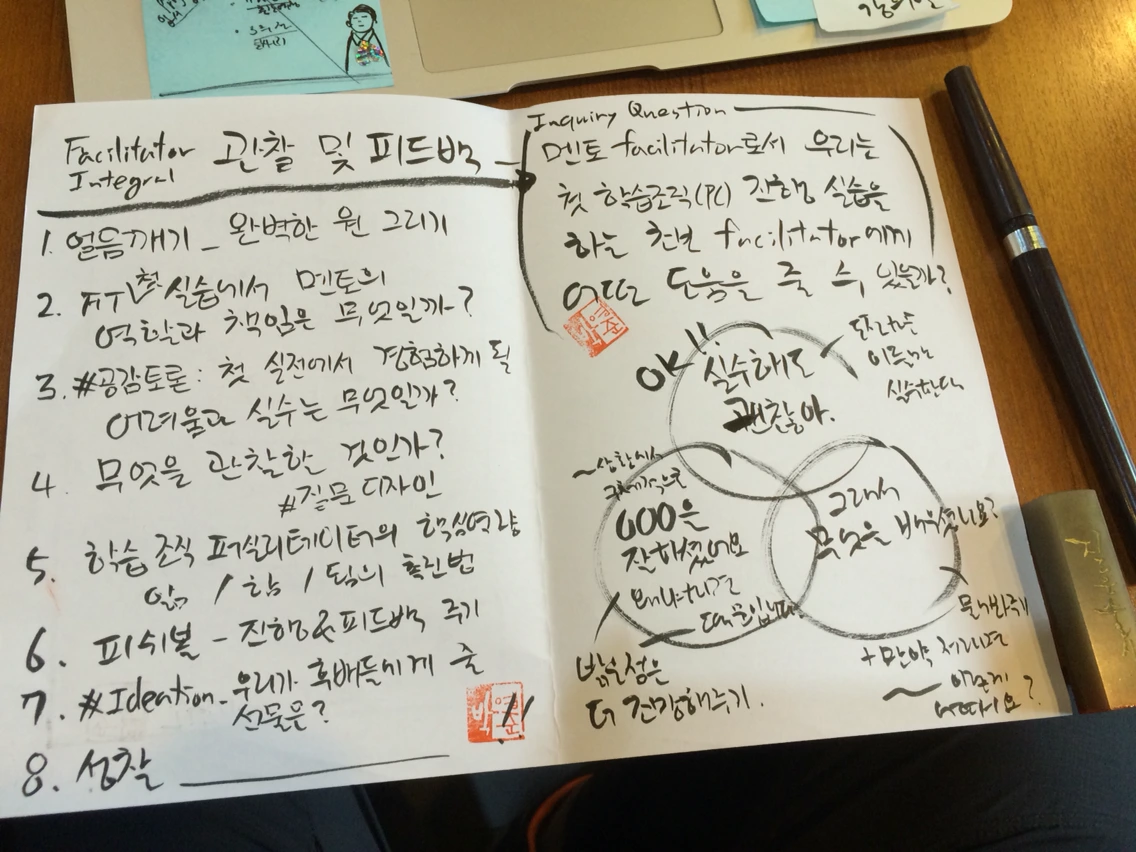 Facilitator
Integral
관찰 및 피드백
1. 얼음깨기 _ 완벽한 원 그리기
2. FT 첫 실습에서 멘토의
역할과 책임은 무엇일까?
3. #공감토론: 첫 실전에서 경험하게 될
어려움과 실수는 무엇일까?
4. 무엇을 관찰할 것인가?
#질문디자인
5. 학습조직 퍼실리테이터의 핵심역량
앎 / 함 / 됨의 촉진법
6. 피쉬볼 - 진행&피드백 주기
7. #Ideation - 우리가 후배들에게 줄
선물은?
8. 성찰
Inquiry Question
멘토 facilitator로서 우리는
첫 학습조직(PC) 진행 실습을
하는 초보 facilitator에게
어떤 도움을 줄 수 있을까?
OK!!
실수해도
괜찮아.
~상황에서
구체적으로
000을
잘하셨어요
왜냐하면
때문입니다.
그래서
무엇을 배우셨나요?
물어봐주기
+ 만약 저라면
~ 이런게
어때요?
밝은 점은
더 건강해누기.